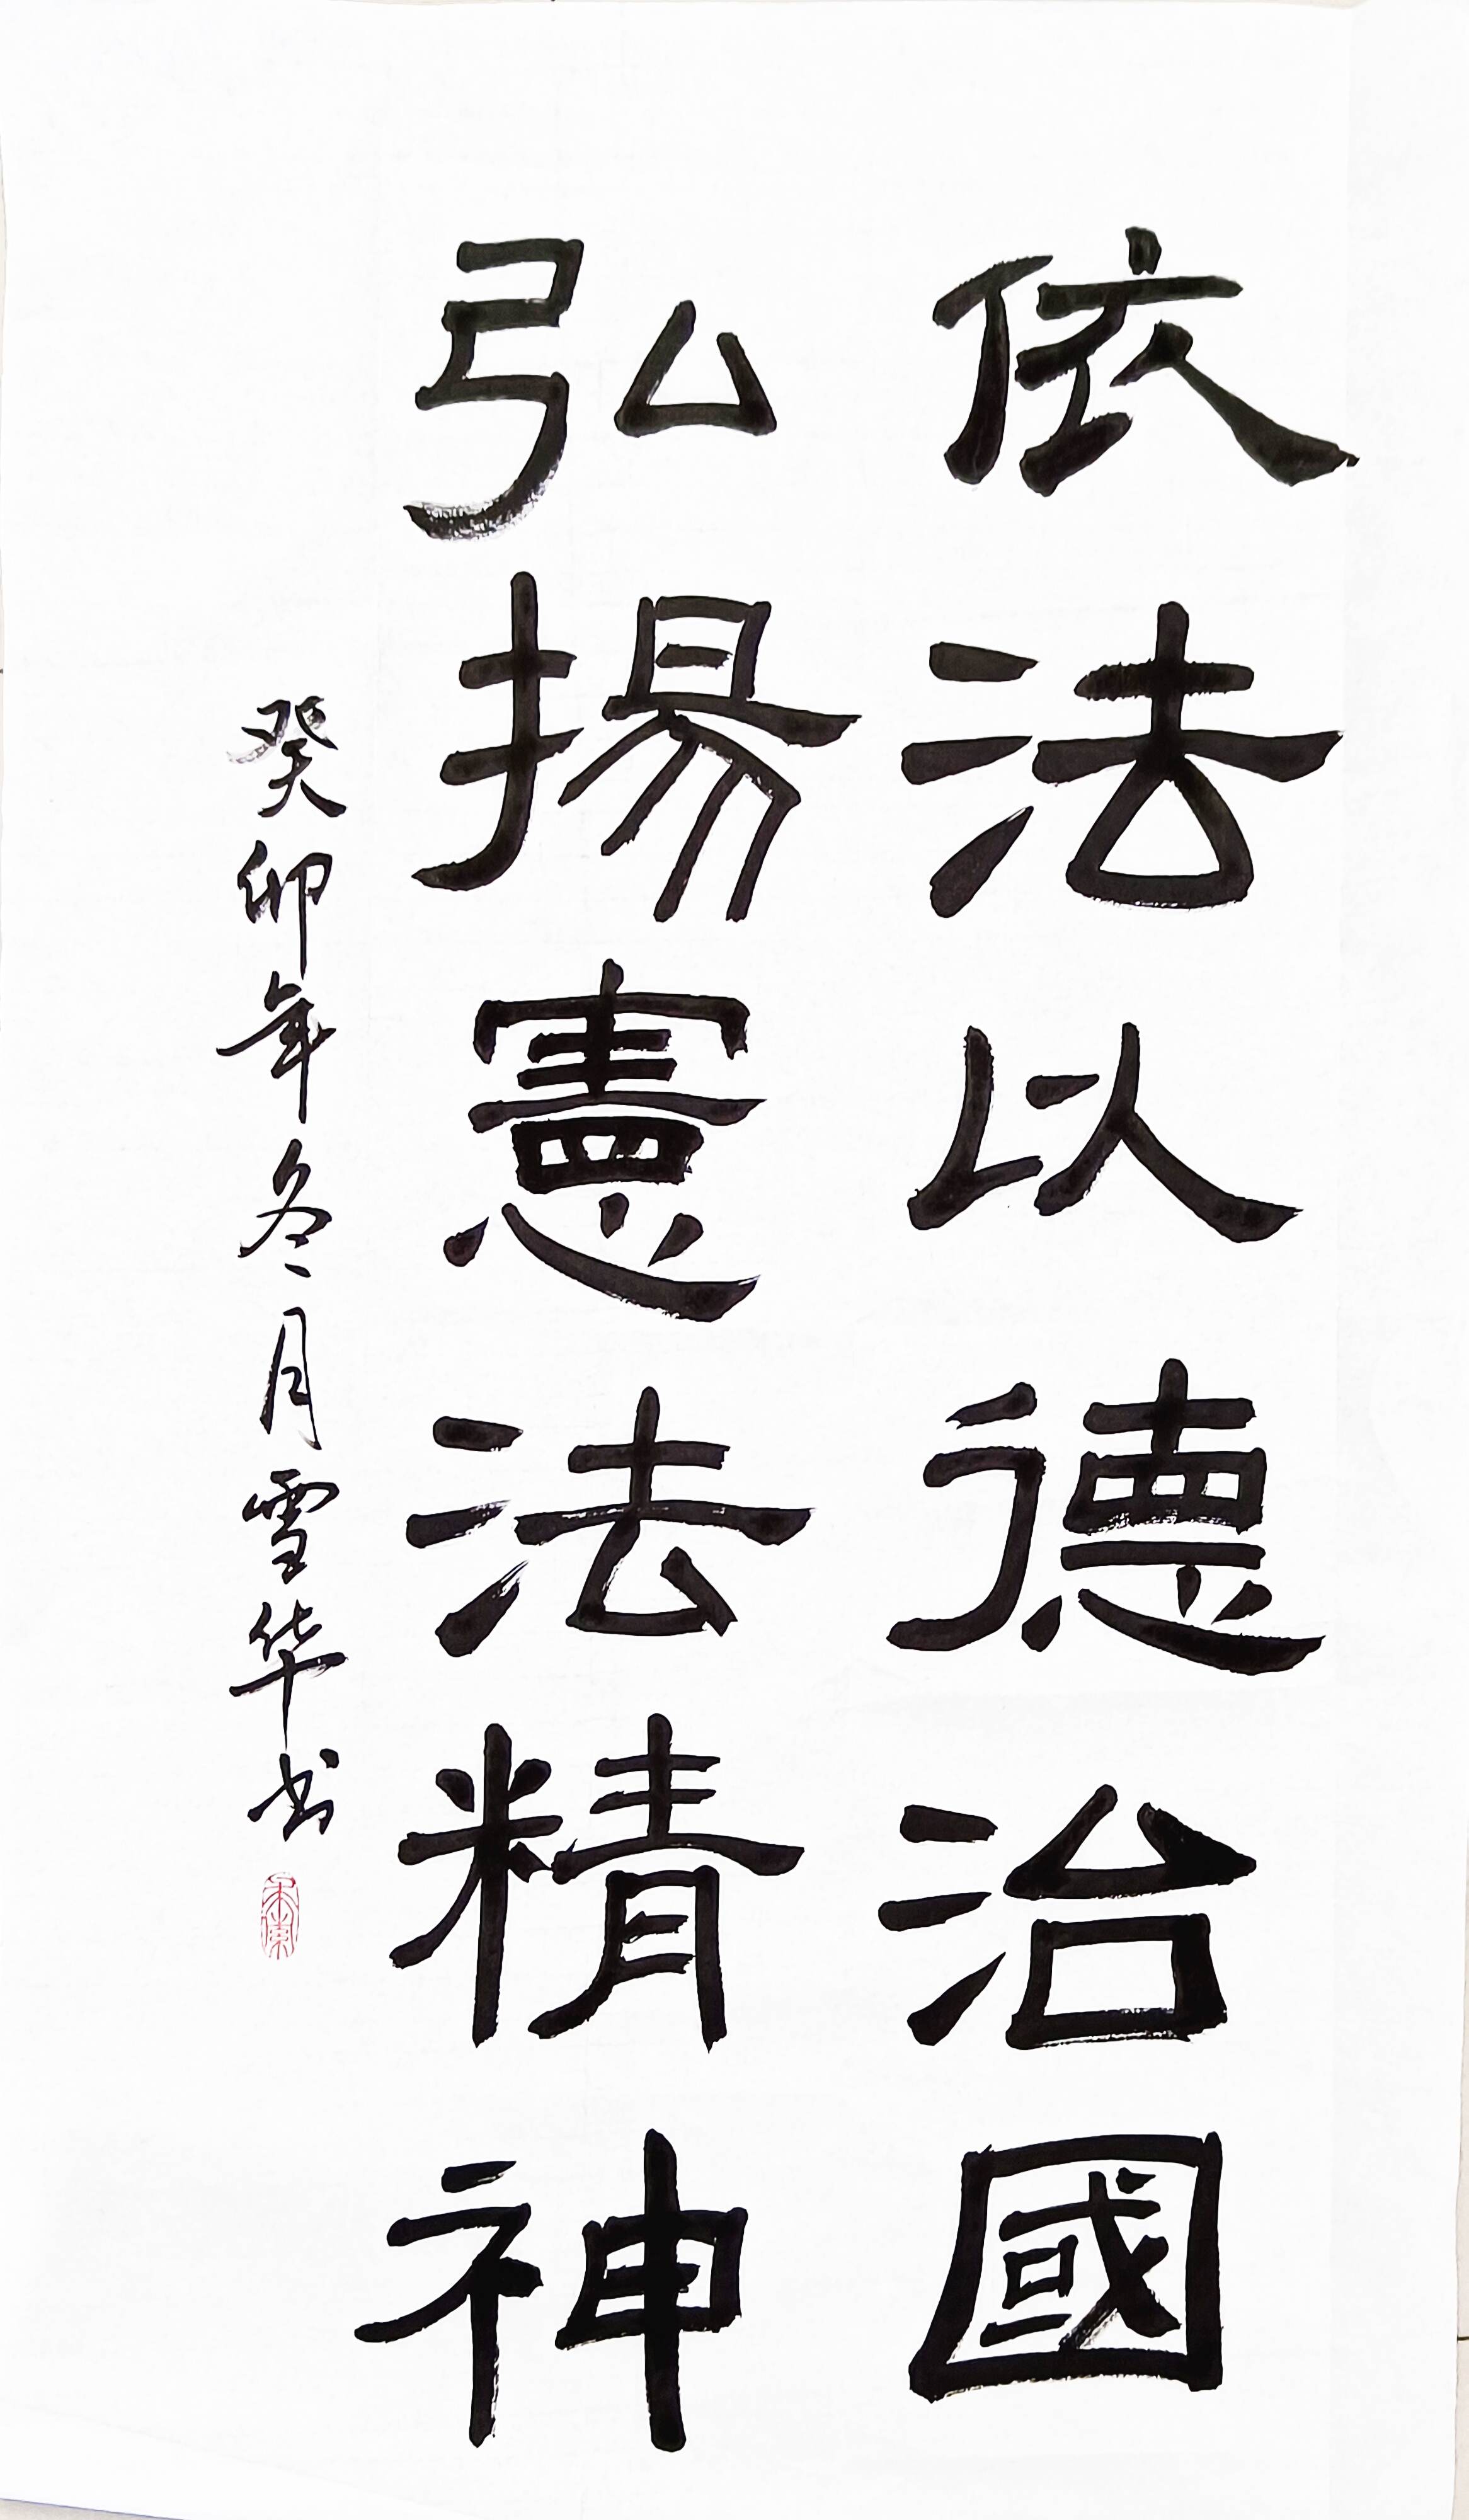 依法以德治國
弘揚憲法精神
癸卯年冬月雪华书